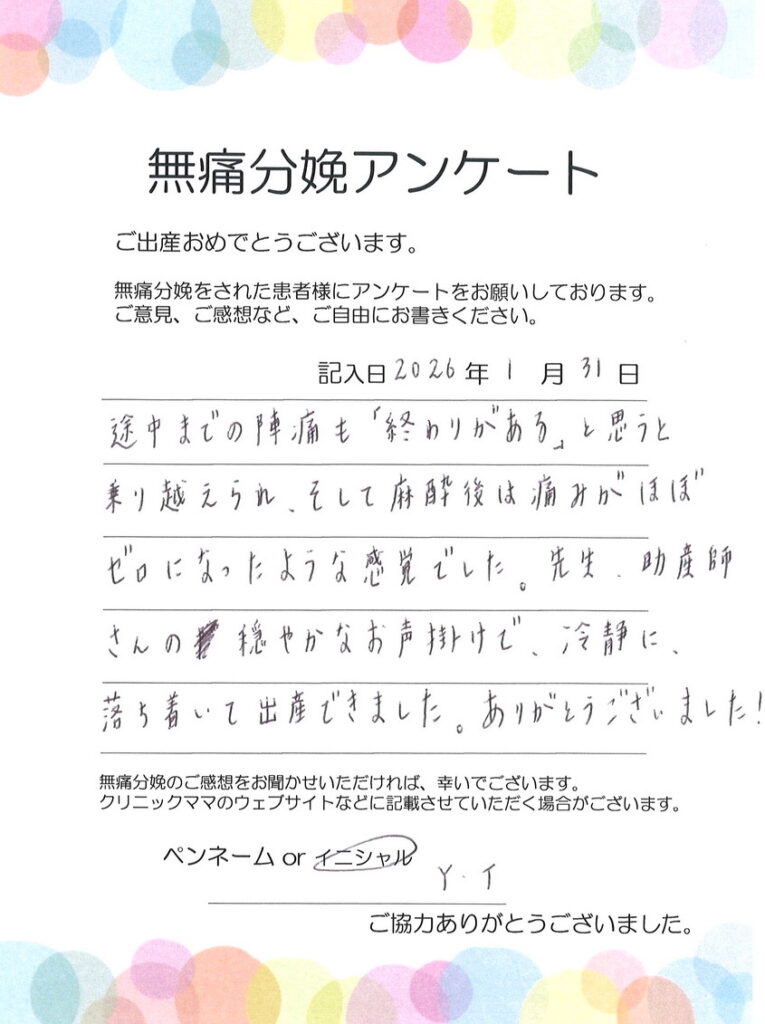 無痛分娩アンケート
ご出産おめでとうございます。
無痛分娩をされた患者様にアンケートをお願いしております。
ご意見、ご感想など、ご自由にお書きください。
記入日 2026 年 1 月 31 日
途中までの陣痛も「終わりがある」と思うと
乗り越えられ、そして麻酔後は痛みがほぼ
ゼロになったような感覚でした。先生、助産師
さんの穏やかなお声掛けで、冷静に、
落ち着いて出産できました。ありがとうございました!
無痛分娩のご感想をお聞かせいただければ、幸いでございます。
クリニックママのウェブサイトなどに記載させていただく場合がございます。
ペンネーム or イニシャル
Y.I
ご協力ありがとうございました。